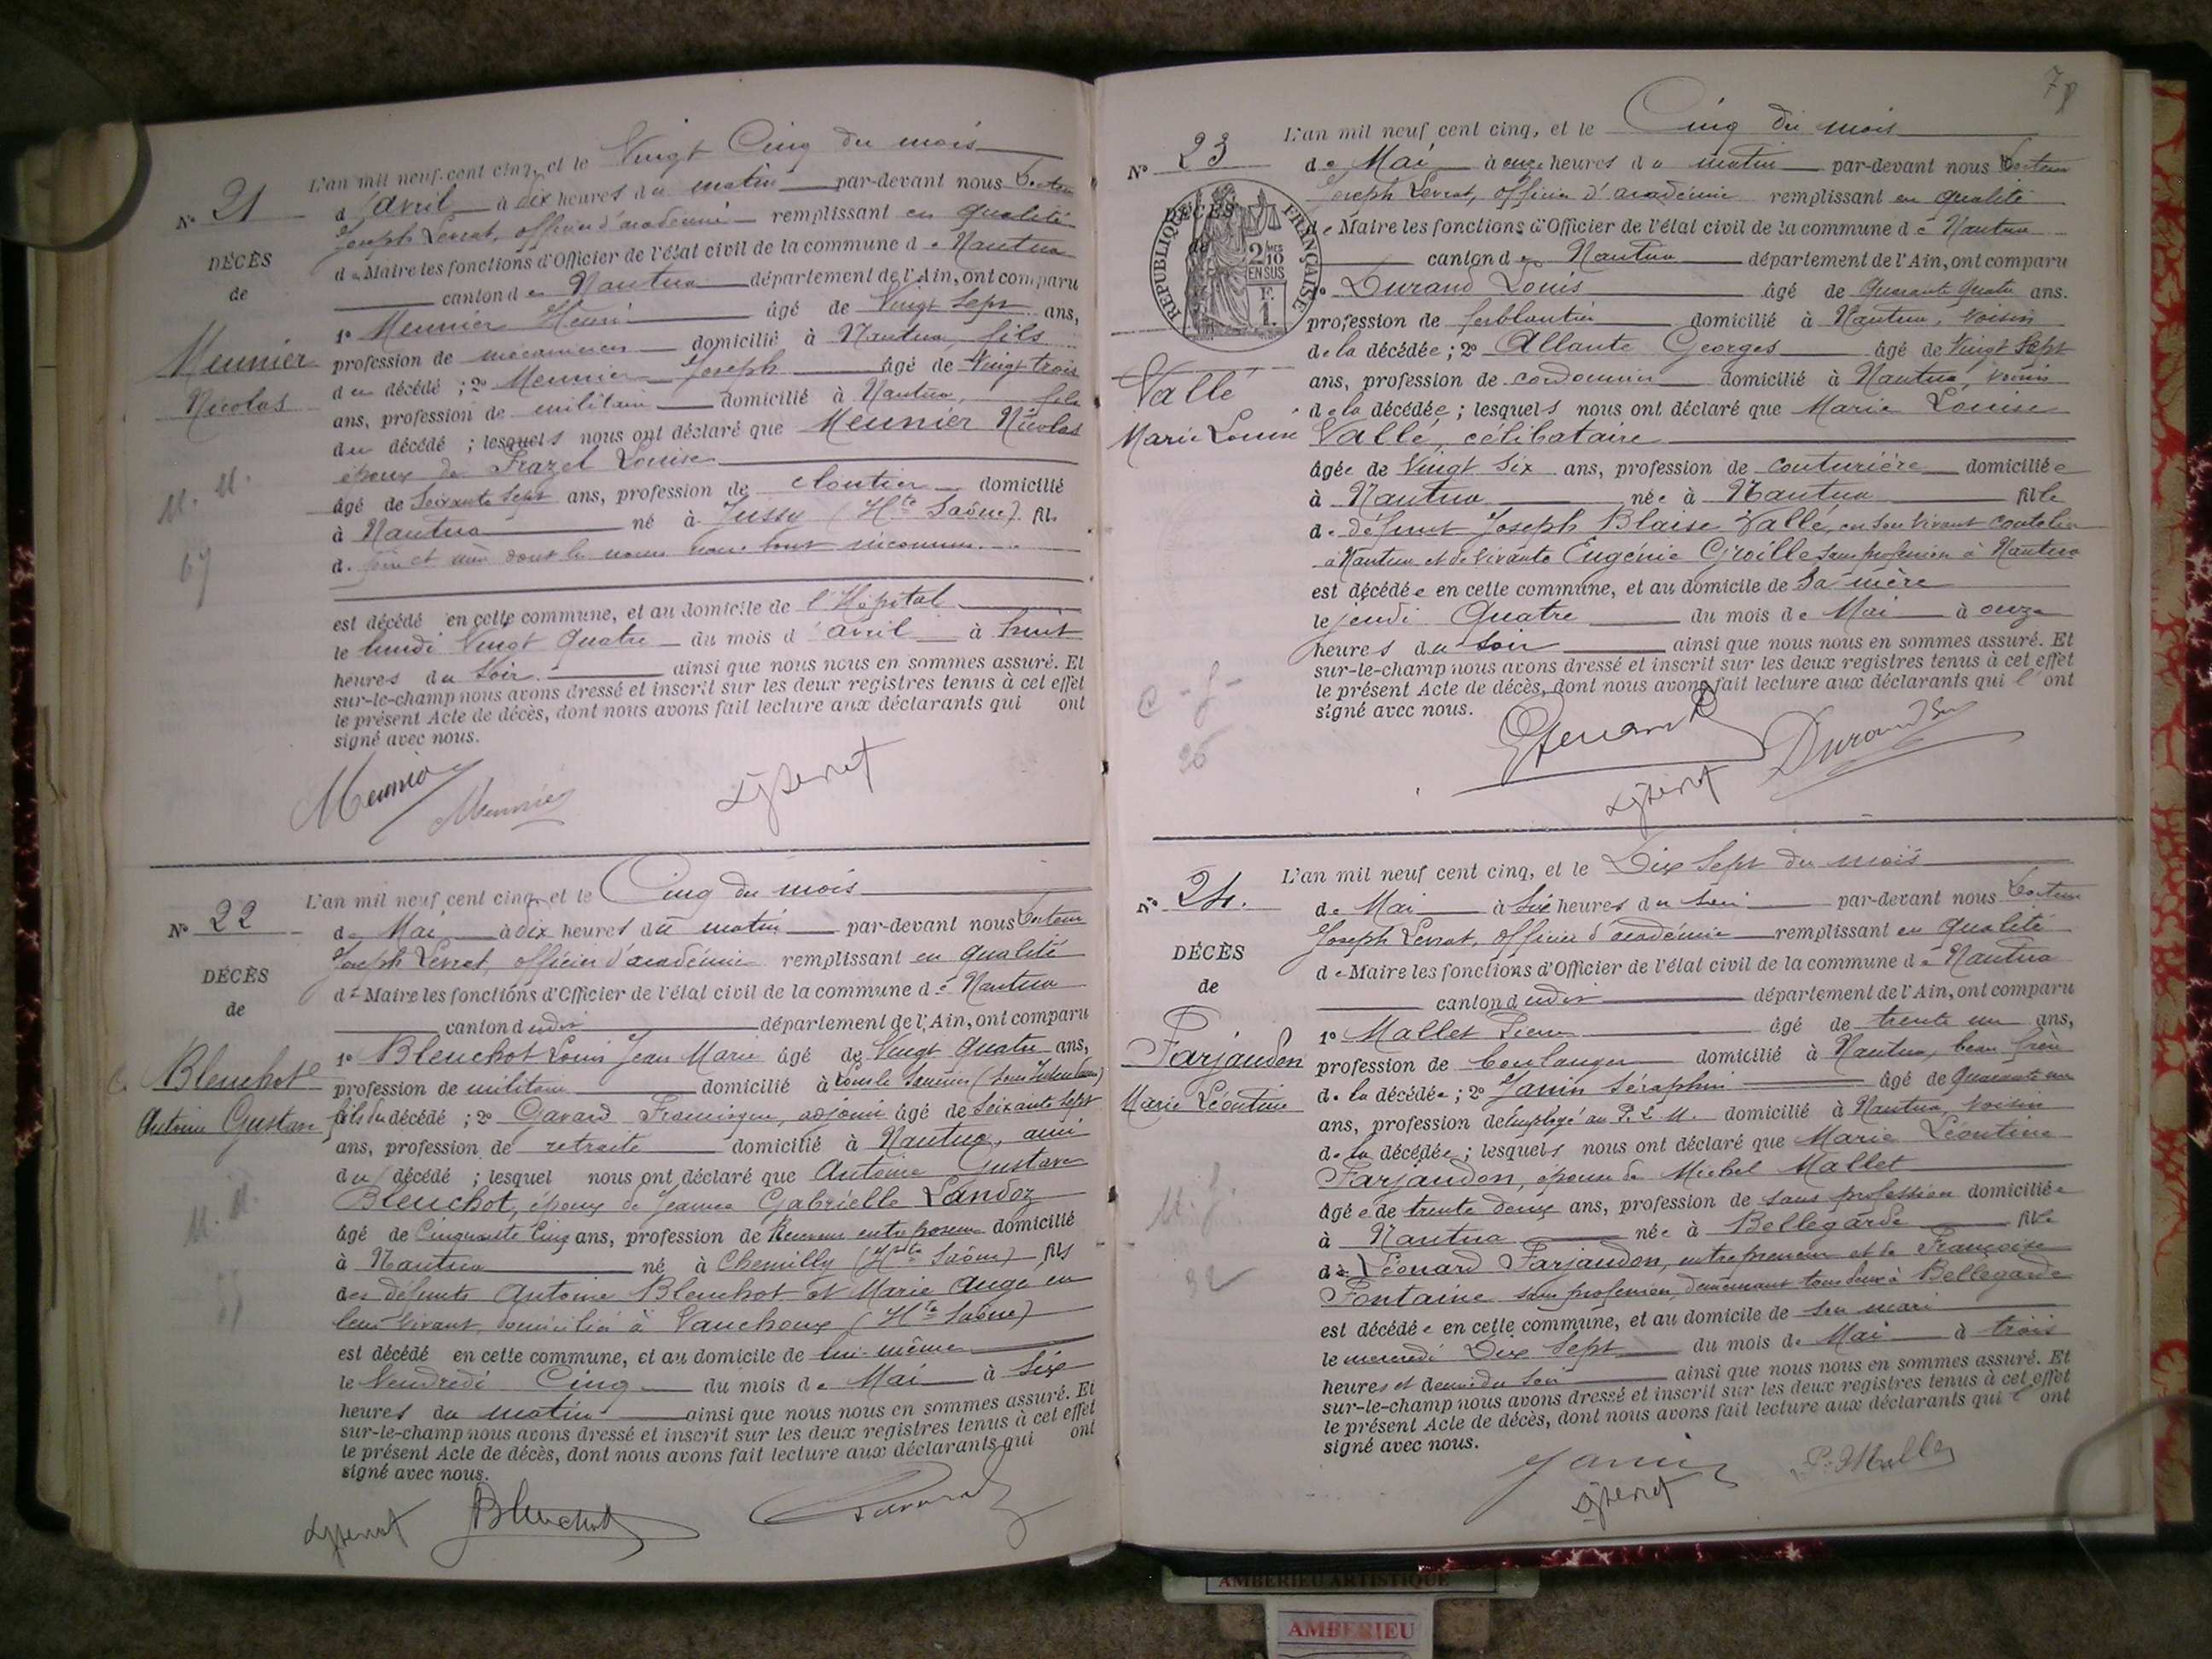 L'an mil neuf cent cinq, et le Vingt Cinq du mois
N° 21
d'avril à dix heures du matin par-devant nous Docteur
Joseph Levrat, officier d'académie remplissant en qualité
DÉCÈS
de Maire les fonctions d'Officier de l'état civil de la commune de Nantua
de
canton de Nantua département de l'Ain, ont comparu
1° Meunier Henri âgé de Vingt Sept ans,
Meunier
profession de mécanicien domicilié à Nantua, fils
du décédé ; 2° Meunier Joseph âgé de Vingt trois
Nicolas
ans, profession de militaire domicilié à Nantua, fils
du décédé ; lesquels nous ont déclaré que Meunier Nicolas
époux de Frazel Louise
M. M.
âgé de Soixante Sept ans, profession de cloutier domicilié
à Nantua né à Jussy (Hte Saône) fils
67
de père et mère dont les noms nous sont inconnus
est décédé en cette commune, et au domicile de l'Hôpital
le lundi Vingt quatre du mois d'avril à huit
heures du Soir. ainsi que nous nous en sommes assuré. Et
sur-le-champ nous avons dressé et inscrit sur les deux registres tenus à cet effet
le présent Acte de décès, dont nous avons fait lecture aux déclarants qui ont
signé avec nous.
Meunier Meunier
L'an mil neuf cent cinq, et le Cinq du mois
N° 22
de Mai à dix heures du matin par-devant nous Docteur
Joseph Levrat, officier d'académie remplissant en qualité
DÉCÈS
de Maire les fonctions d'Officier de l'état civil de la commune de Nantua
de
canton dudit département de l'Ain, ont comparu
1° Bleuchot Louis Jean Marie âgé de Vingt quatre ans,
Bleuchot
profession de militaire domicilié à Lons le Saunier
Antoine Gustave
fils du décédé ; 2° Gavard adjoint âgé de Soixante Sept
ans, profession de retraité domicilié à Nantua, ami
du décédé ; lesquel nous ont déclaré que Antoine Gustave
Bleuchot, époux de Jeanne Gabrielle Landoz
M. M.
âgé de Cinquante Cinq ans, profession de Receveur entreposeur domicilié
à Nantua né à Chemilly (Hte Saône) fils
des défunts Antoine Bleuchot et Marie Auge en
leur vivant, domiciliés à Vauchoux (Hte Saône)
est décédé en cette commune, et au domicile de lui-même
le Vendredi Cinq du mois de Mai à Six
heures du matin ainsi que nous nous en sommes assuré. Et
sur-le-champ nous avons dressé et inscrit sur les deux registres tenus à cet effet
le présent Acte de décès, dont nous avons fait lecture aux déclarants qui ont
signé avec nous.
Bleuchot Gavard
78
L'an mil neuf cent cinq, et le Cinq du mois
N° 23
de Mai à onze heures du matin par-devant nous Docteur
Joseph Levrat, officier d'académie remplissant en qualité
DÉCÈS
RÉPUBLIQUE FRANÇAISE
2/10 EN SUS
F. 1.
de Maire les fonctions d'Officier de l'état civil de la commune de Nantua
canton de Nantua département de l'Ain, ont comparu
1° Durand Louis âgé de Quarante quatre ans.
profession de ferblantier domicilié à Nantua, voisin
de la décédée ; 2° Allante Georges âgé de Vingt Sept
Vallé
ans, profession de cordonnier domicilié à Nantua, voisin
de la décédée ; lesquels nous ont déclaré que Marie Louise
Marie Louise
Vallé, célibataire
âgée de Vingt Six ans, profession de couturière domiciliée
à Nantua née à Nantua fille
de défunt Joseph Blaise Vallé, en son vivant
à Nantua et de vivante Eugénie Groille sans profession à Nantua
est décédée en cette commune, et au domicile de Sa mère
le jeudi Quatre du mois de Mai à onze
heures du soir ainsi que nous nous en sommes assuré. Et
sur-le-champ nous avons dressé et inscrit sur les deux registres tenus à cet effet
C - f -
le présent Acte de décès, dont nous avons fait lecture aux déclarants qui l'ont
signé avec nous.
26
Durand
L'an mil neuf cent cinq, et le Dix Sept du mois
N° 24.
de Mai à Six heures du soir par-devant nous Docteur
Joseph Levrat, officier d'académie remplissant en qualité
DÉCÈS
de Maire les fonctions d'Officier de l'état civil de la commune de Nantua
de
canton dudit département de l'Ain, ont comparu
1° Mallet Pierre âgé de trente un ans,
Farjaudon
profession de boulanger domicilié à Nantua, beau frère
de la décédée ; 2° Janin Séraphin âgé de quarante un
Marie Léontine
ans, profession de Employé au P. L. M. domicilié à Nantua, voisin
de la décédée ; lesquels nous ont déclaré que Marie Léontine
Farjaudon, épouse de Michel Mallet
M. f.
âgée de trente deux ans, profession de sans profession domiciliée
à Nantua née à Bellegarde fille
de Léonard Farjaudon, entrepreneur et de Françoise
32
Fontaine sans profession, demeurant tous deux à Bellegarde
est décédée en cette commune, et au domicile de son mari
le mercredi Dix Sept du mois de Mai à trois
heures et demie du soir ainsi que nous nous en sommes assuré. Et
sur-le-champ nous avons dressé et inscrit sur les deux registres tenus à cet effet
le présent Acte de décès, dont nous avons fait lecture aux déclarants qui l'ont
signé avec nous.
Janin P. Mallet
AMBERIEU ARTISTIQUE
AMBERIEU